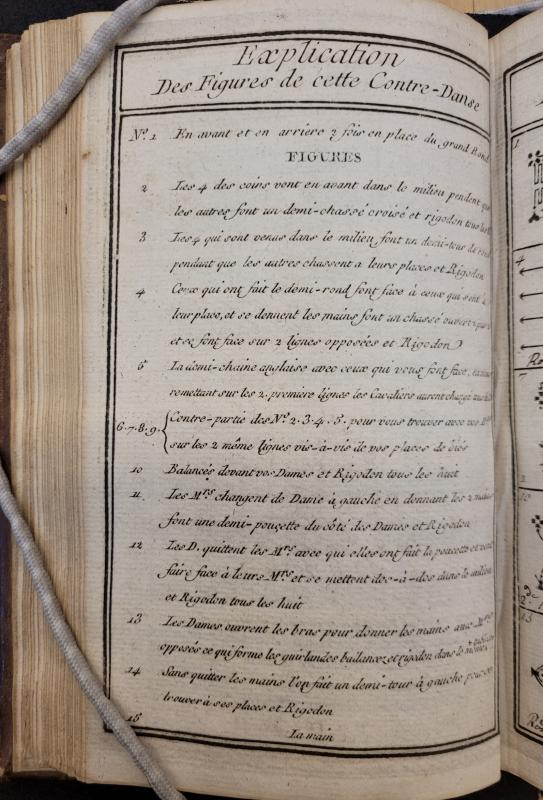 Explication
Des Figures de cette Contre-Danse
N.º 1 En avant et en arriere 2 fois en place du grand Rond
FIGURES
2 Les 4 des coins vont en avant dans le milieu pendent que
les autres font un demi-chassé croisé et rigodon tous les
3 Les 4 qui sont venus dans le milieu font un demi-tour de rond
pendant que les autres chassent a leurs places et Rigodon
4 Ceux qui ont fait le demi-rond font face à ceux qui sont à
leur place, et se donnent les mains font un chassé ouvert
et se font face sur 2 lignes opposées et Rigodon
5 La demi-chaine anglaise avec ceux qui vous font face, en vous
remettant sur les 2. premiere lignes les Cavaliers auront changé
6.7.8.9. Contre-partie des Nº. 2.3.4.5. pour vous trouver avec vos
sur les 2 même lignes vis-à-vis de vos places de biés
10 Balancés devant vos Dames et Rigodon tous les huit
11. Les Mrs changent de Dame à gauche en donnant les 2 mains
font une demi-pousette du côté des Dames et Rigodon
12 Les D. quittent les Mrs avec qui elles ont fait la poucette et vont
faire face à leurs Mrs et se mettent dos-à-dos dans le milieu
et Rigodon tous les huit
13 Les Dames ouvrent les bras pour donner les mains aux Mrs
opposés ce qui forme les guirlandes balancez et rigodon dans le même
14 Sans quitter les mains l'on fait un demi-tour à gauche pour se
trouver à ses places et Rigodon
15
La main
1
4
7
10
13